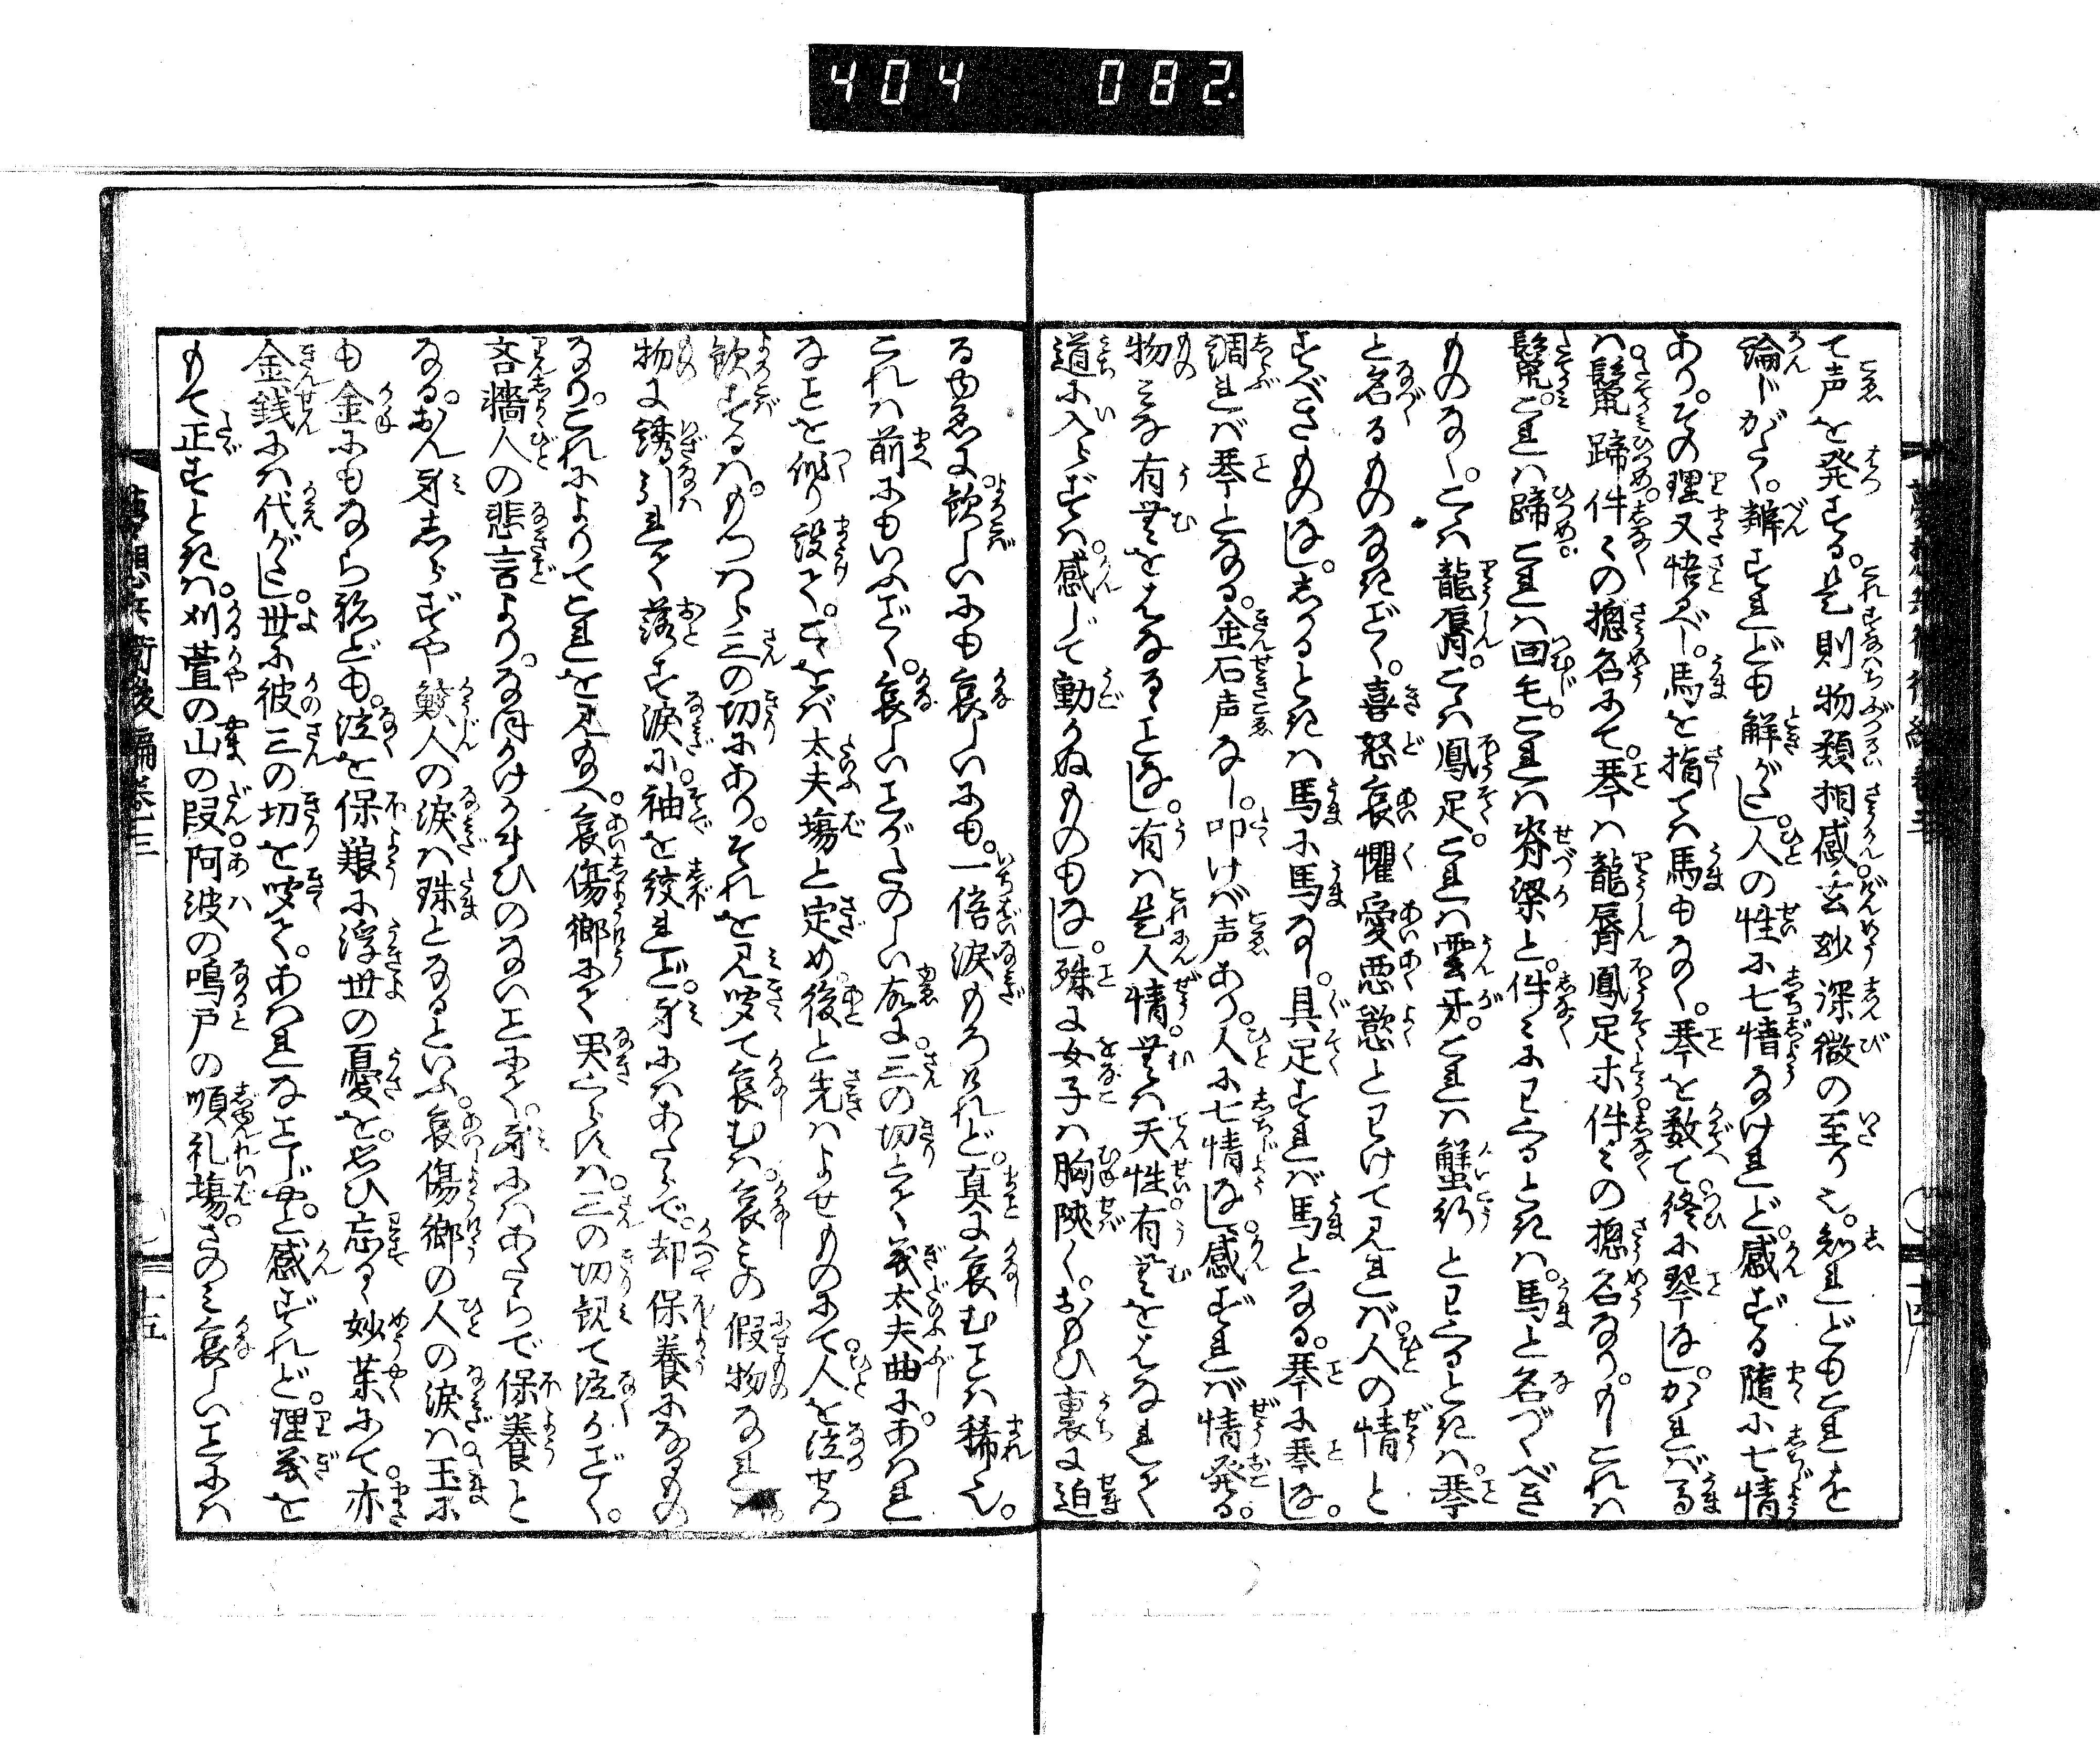 404 082
て声を発する。是則物類相感。玄妙深微の至り也。知れどもこれを
論じがたく。辨ずれども解がたし。人の性に七情なけれど。感ずる隨に七情
あり。その理又悟るべし。馬を指ては馬もなく。琴を数て終に琴なし。かれバ馬
ハ鬣蹄件〻の摠名にて。琴ハ龍唇鳳足ホ件〻の摠名なり。もしこれハ
鬣。これハ蹄。これハ回毛。これハ脊梁と。件〻にわかるときハ。馬と名づくべき
ものなし。こハ龍唇。こハ鳳足。これハ雲牙。これハ蟹行とわかるときハ。琴
と名るものなきごとく。喜怒哀懼愛悪慾とわけて見れバ。人の情と
すべきものなし。しかるときハ馬に馬なし。具足すれバ馬となる。琴に琴なし。
調れバ琴となる。金石声なし。叩けバ声あり。人に七情なし。感ずれバ情発る。
物みな有無をはなるゝことなし。有ハ是人情。無ハ天性。有無をはなれて
道に入らずハ。感じて動かぬものもなし。殊に女子ハ胸陜く。おもひ裏に迫
るゆゑに。歓しいにも哀しいにも。一倍涙もろけれど。真に哀むことハ稀也。
これハ前にもいふごとく。哀しいことがたのしい故に。三の切とて義太夫曲に。あはれ
なことを作り設て。こゝをバ太夫塲と定め。後と先ハよせものにて。人を泣せつ
歓するハ。もつハら三の切にあり。それを見聞て哀むハ。哀みの假物なれバ。
物に誘引れて落す涙に。袖を絞れど。身にハあたらで。却保養になるもの
なり。これによりてこれを見れバ。哀傷郷にて哭くらすハ。三の切観て泣くごとく。
吝嗇人の悲言より。なほかけかまひのないことにて。身にハあたらで保養と
なる。おん身しらずや鮫人の涙ハ珠となるといふ。哀傷郷の人の涙ハ玉に
も金にもならねども。泣を保粮に浮世の憂を。思ひ忘るゝ妙薬にて。亦
金銭にハ代がたし。世に彼三の切を聞て。あはれなことじやと。感ずれど。理義を
もて正すときハ。刈萱の山の段。阿波の鳴戸の順礼塲。さのみ哀しいことにハ
夢想兵衛後編巻三
十五
十四